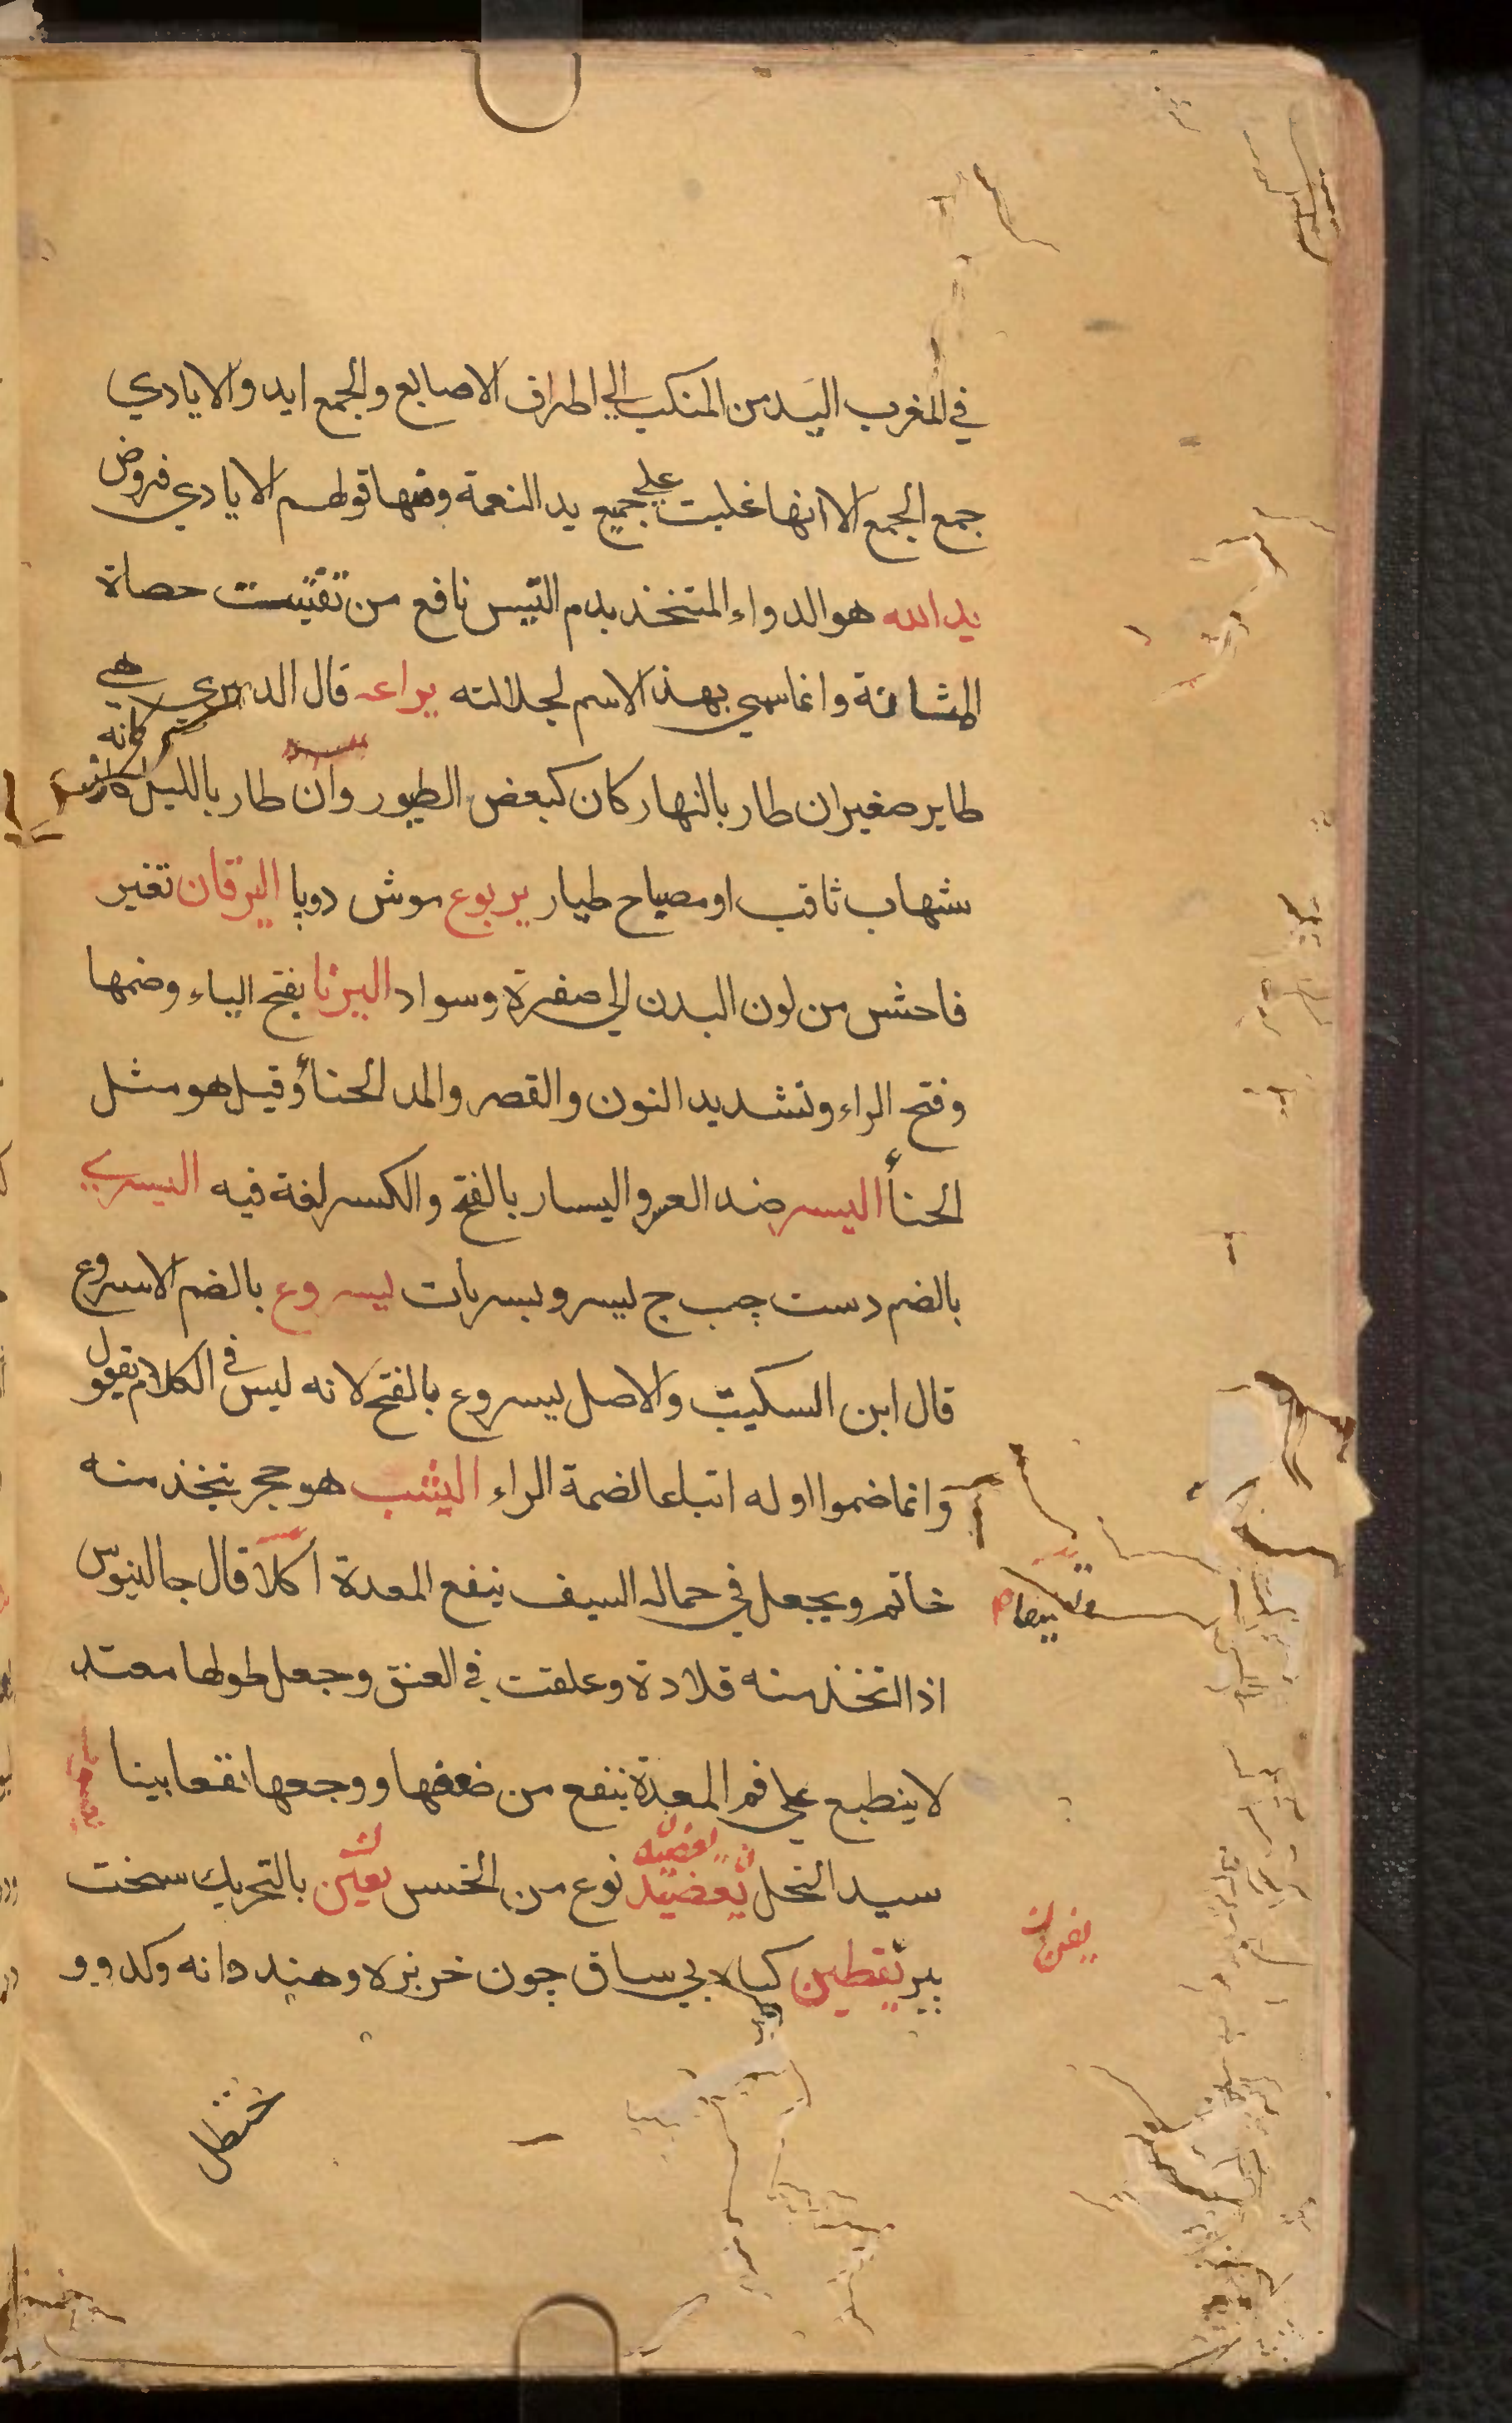 في المغرب اليد من المنكب الي اطراف الاصابع والجمع ايد والايادي
جمع الجمع الا انها غلبت علي جميع يد النعمة ومنها قولهم الايادي فروض
يد الله هو الدواء المتخذ بدم التيس نافع من تفتيت حصاة
المثانة وانما سمي بهذ الاسم لجلالته يراعه قال الدميري هي
طاير صغير ان طار بالنهار كان كبعض الطيور وان طار بالليل كانه
شهاب ثاقب او مصباح طيار يربوع موش دوپا اليرقان تغير
فاحش من لون البدن الي صفرة وسواد اليرنا بفتح الياء وضمها
وفتح الراء وتشديد النون والقصر والمد الحنأ وقيل هو مثل
الحنأ اليسر ضد العسر واليسار بالفتح والكسر لغة فيه اليسري
بالضم دست چپ ج يسر ويسريات يسروع بالضم الاسروع
قال ابن السكيت والاصل يسروع بالفتح لانه ليس في الكلام يقول
وانما ضموا اوله اتباعا لضمة الراء اليشب هو حجر يتخذ منه
خاتم ويجعل في حماله السيف ينفع المعدة اكلا قال جالنيوس
اذا اتخذ منه قلادة وعلقت في العنق وجعل طولها معتد
لا ينطبع علي فم المعدة ينفع من ضعفها ووجعها نفعا بينا
سيد النحل يعضيد نوع من الخس يفن بالتحريك سخت
پير يقطين كياه بي ساق چون خربزه وهندوانه وكدو و
يفن
حنظل